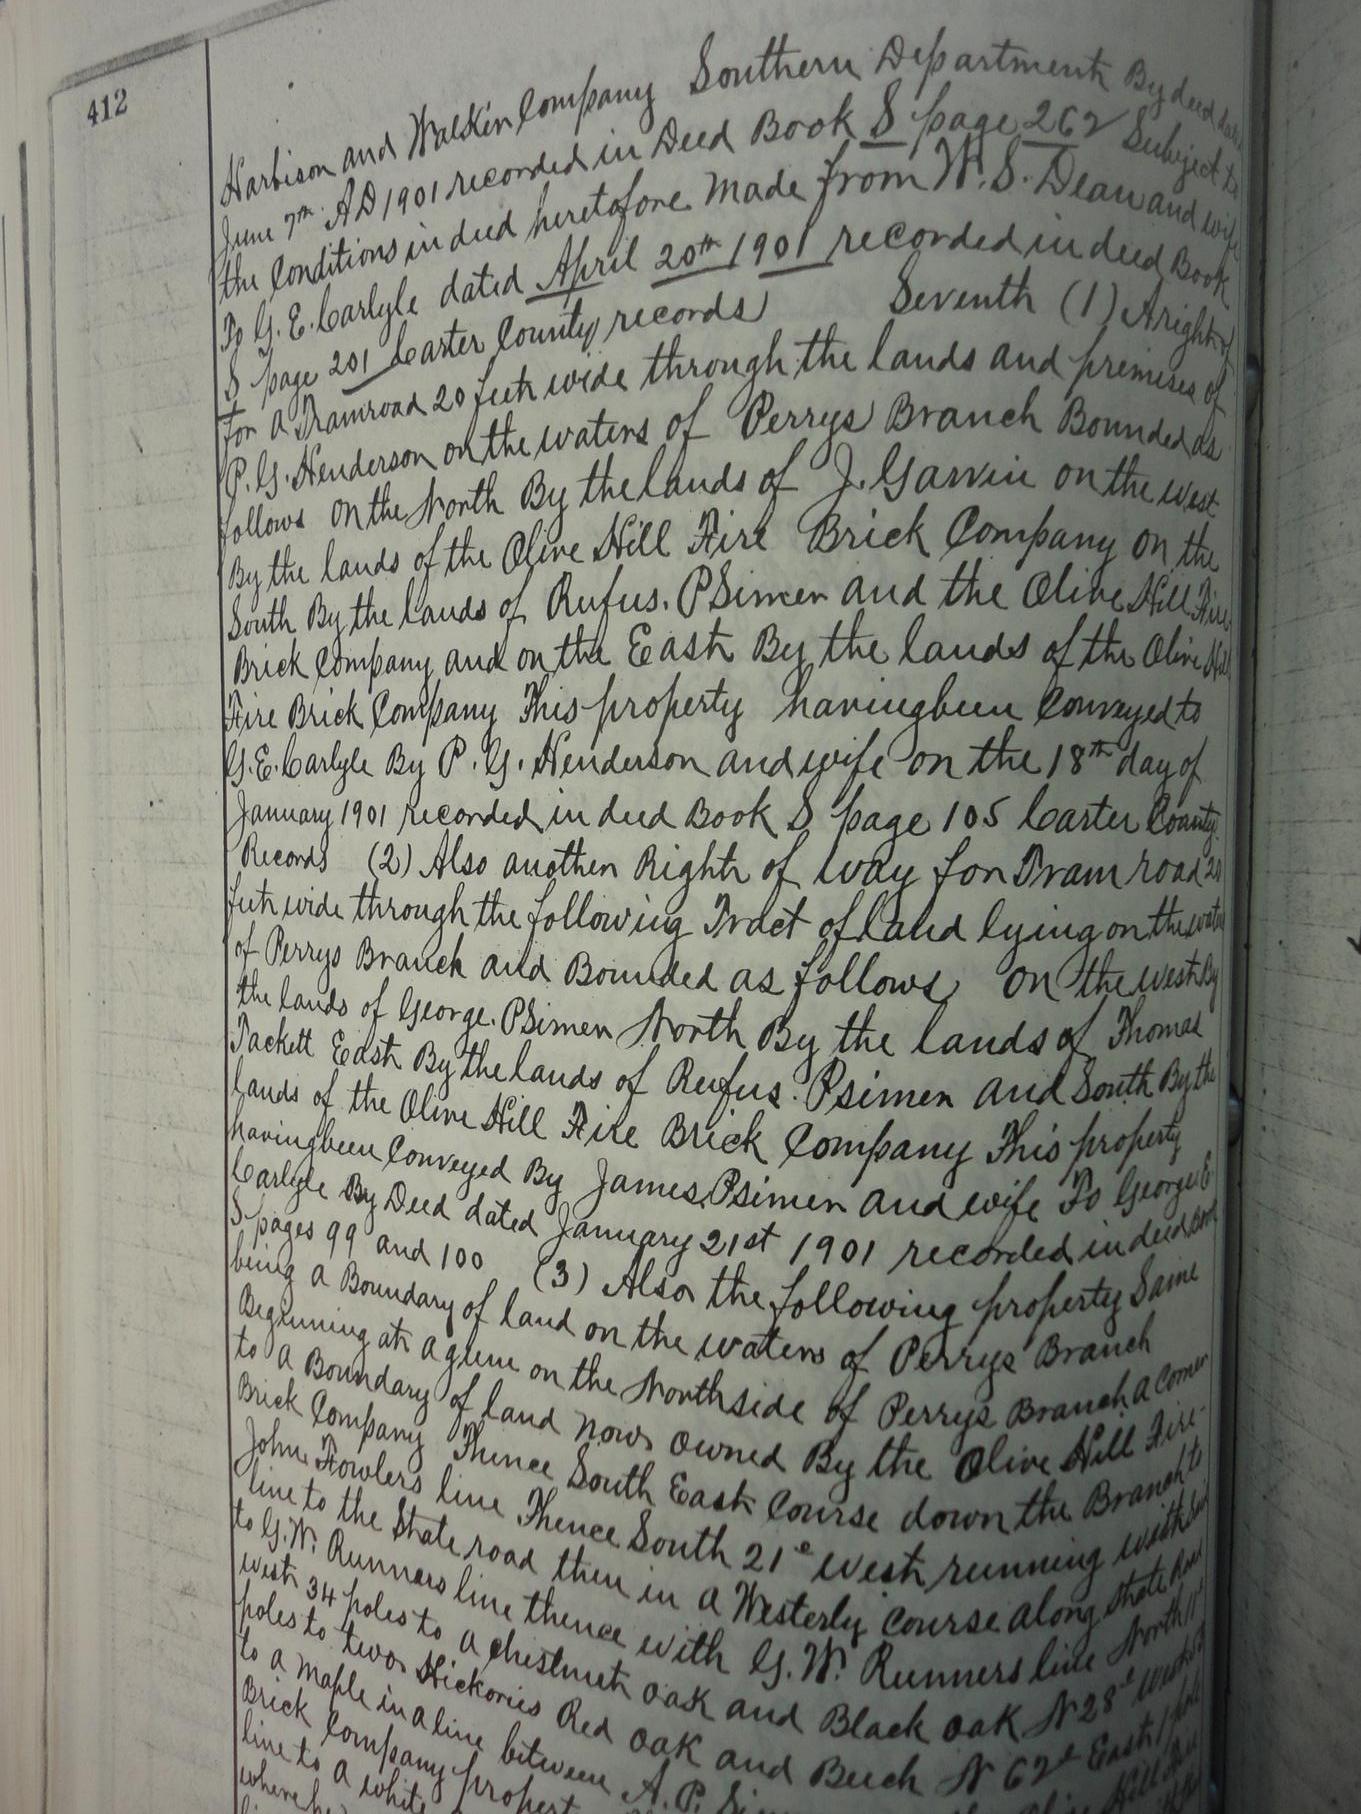 412
Harbison and Walker Company Southern Department By deed
June 7th AD 1901 recorded in Deed Book S page 262 Subject to
the Conditions in deed heretofore made from W. S. Dean and wife
To G. E. Carlyle dated April 20th 1901 recorded in deed Book
S page 201 Carter County records Seventh (1) A right of
for a Tramroad 20 feet wide through the lands and premises of
P. G. Henderson on the waters of Perrys Branch Bounded as
follows on the North By the lands of J. Garvin on the west
By the lands of the Olive Hill Fire Brick Company on the
South By the lands of Rufus. PSimen and the Olive Hill Fire
Brick Company and on the East By the lands of the Olive Hill
Fire Brick Company This property having been Conveyed to
G. E. Carlyle By P. G. Henderson and wife on the 18th day of
January 1901 recorded in deed Book S page 105 Carter County
Records (2) Also another Right of way for Tram road 20
feet wide through the following Tract of land lying on the
of Perrys Branch and Bounded as follows on the west By
the lands of George. PSimen North By the lands of Thomas
Tackett East By the lands of Rufus. Psimen and South By the
lands of the Olive Hill Fire Brick Company This property
having been Conveyed By James Psimen and wife To George E
Carlyle By Deed dated January 21st 1901 recorded in deed Book
S pages 99 and 100 (3) Also the following property Same
being a Boundary of land on the waters of Perrys Branch
Beginning at a gum on the North side of Perrys Branch a corner
to a Boundary of land now owned By the Olive Hill Fire
Brick Company Thence South East Course down the Branch to
John Fowlers line Thence South 21° west running with
line to the State road then in a Westerly Course along State Road
to G. W. Runners line thence with G. W. Runners line North
west 34 poles to a chestnut oak and Black oak N 28° West
poles to two Hickories Red oak and Beech N 62° East
to a maple in a line between A. P.
Brick Company
line to a white